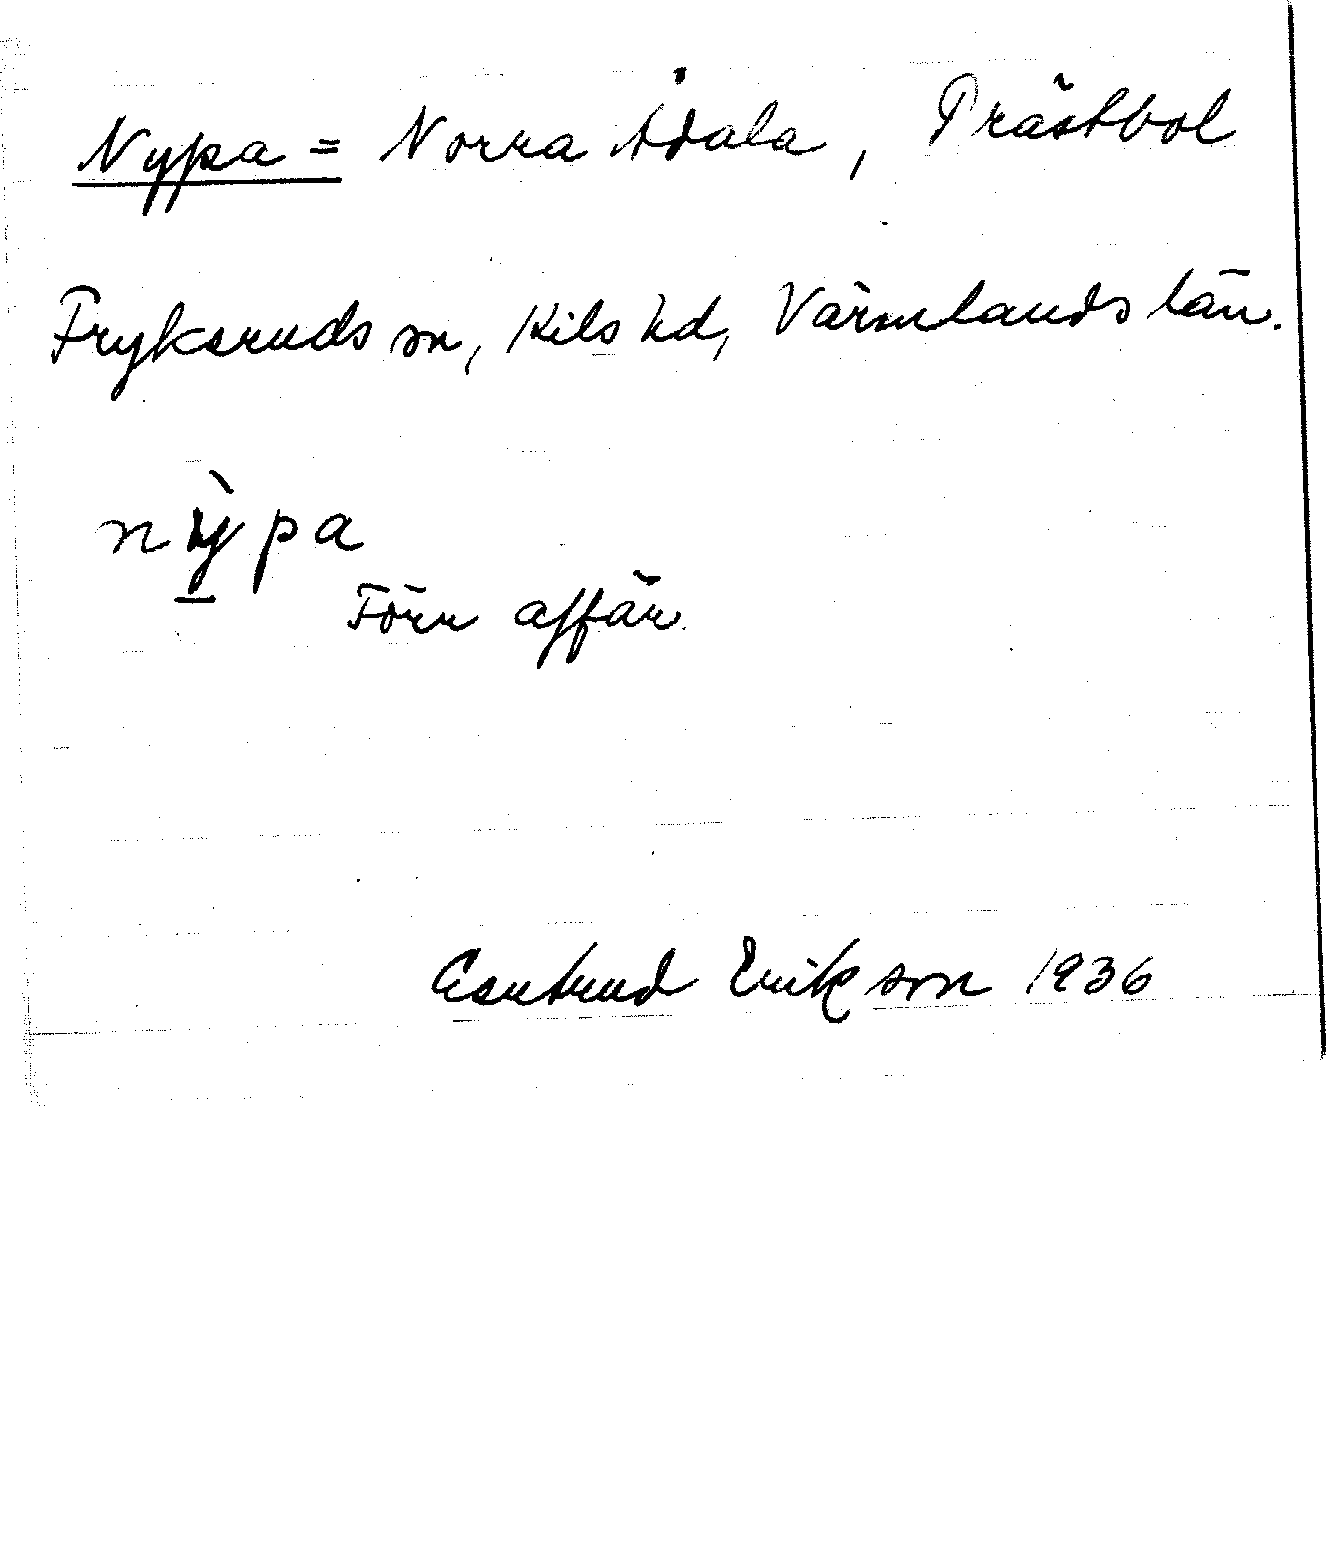 Nypa = Norra Ådala, Prästbol
Fryksruds sn, Kils hd, Värmlands län.
nỳpa
Förr affär.
Erikson 1936